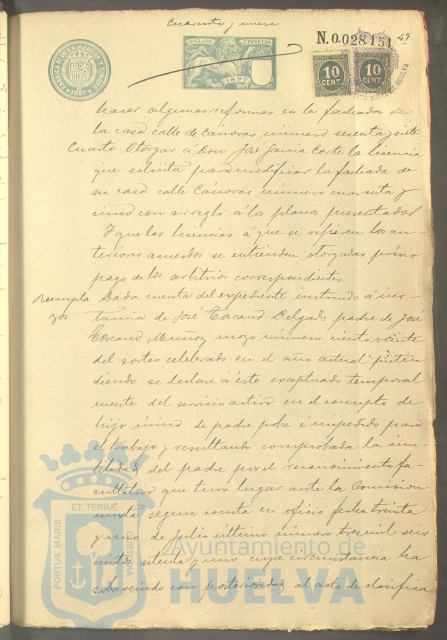 Cuarenta y nueve
N.0.028.151
49
1897
10 CENT.
10 CENT.
HUELVA
hacer algunas reformas en la fachada de
la casa calle de Cánovas número sesenta y siete
Cuarto Otorgar a Don José García Corte la licencia
que solicita para modificar la fachada de
su casa calle Cánovas número cuarenta y
cinco con arreglo á los planos presentados
Y que las licencias á que se refieren los an-
teriores acuerdos se entienden otorgadas prévio
pago de los arbitrios correspondientes
Reempla
zos
Dada cuenta del expediente instruido á ins-
tancia de José Toscano Delgado padre de José
Toscano Muñoz mozo número ciento veinte
del sorteo celebrado en el año actual preten
diendo se declare á éste exceptuado temporal
mente del servicio activo en el concepto de
hijo único de padre pobre é impedido para
el trabajo y resultando comprobada la inu-
tilidad del padre por el reconocimiento fa-
cultativo que tuvo lugar ante la Comision
mixta segun consta en oficio fecha treinta
y uno de julio último número tres mil seis
cientos setenta y uno cuya circunstancia ha
sobrevenido con posterioridad al acto de clasifica
PORTUS MARIS
ET TERRAE
CUSTODIA
Ayuntamiento de
HUELVA